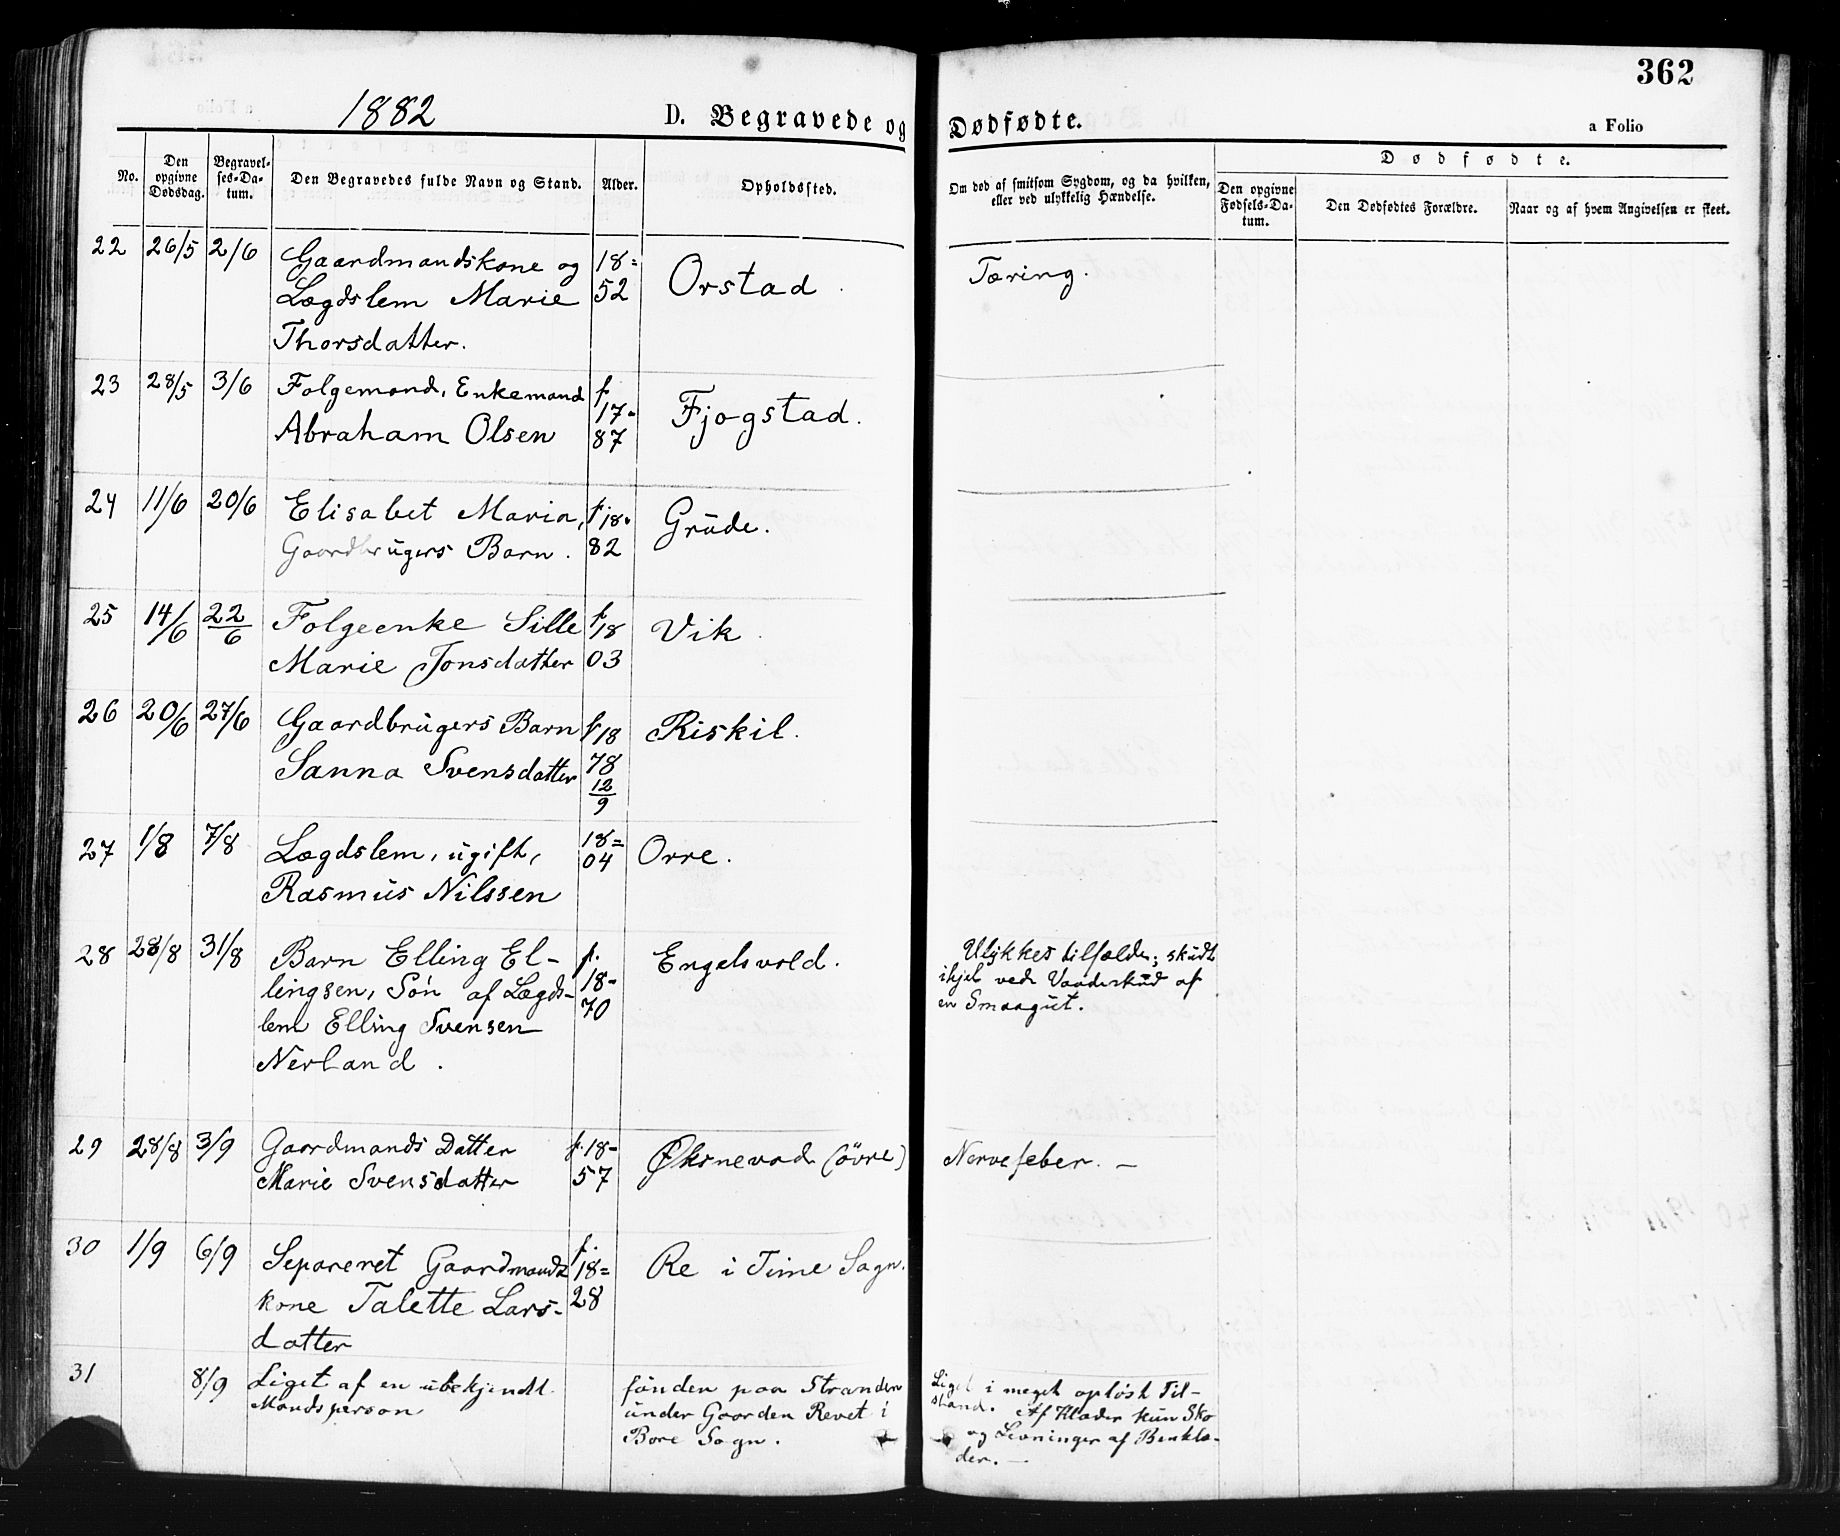 362
1882
D. Begravede og Dødfødte.
a Folio
No.
Den opgivne Dødsdag.
Begravelses-Datum.
Den Begravedes fulde Navn og Stand.
Alder.
Opholdssted.
Om død af smitsom Sygdom, og da hvilken, eller ved ulykkelig Hændelse.
Dødfødte.
Den opgivne Fødsels-Datum.
Den Dødfødtes Forældre.
Naar og af hvem Angivelsen er skeet.
22 26/5 2/6 Gaardmandskone og 18= Orstad. Tæring.
Lægdslem Marie 52
Thorsdatter.
23 28/5 3/6 Folgemand, Enkemand f Fjogstad.
Abraham Olsen 17-
87
24 11/6 20/6 Elisabet Maria, f. 18- Grude.
Gaardbrugers Barn. 82
25 14/6 22/6 Folgeenke Sille f 18 Vik.
Marie Jonsdatter 03
26 20/6 27/6 Gaardbrugers Barn f 18 Riskil.
Sanna Svensdatter 78
12/9
27 1/8 7/8 Lægdslem, ugift, 18= Orre.
Rasmus Nilssen 04
28 28/8 31/8 Barn Elling El- f. Engelsvold. Ulykkestilfælde; skudt
lingsen, Søn af Lægds- 18- ihjel ved Vaadeskud af
lem Elling Svensen 70 en Smaagut.
Nerland.
29 28/8 3/9 Gaardmands Datter f. 18- Øksnevad (øvre) Nervefeber. —
Marie Svensdatter 57
30 1/9 6/9 Separeret Gaardmands f. Re i Time Sogn.
kone Talette Lars- 18=
datter 28
31 8/9 Liget af en ubekjendt funden paa Stranden Liget i meget opløst Til-
Mandsperson under Gaarden Revet i stand. Af Klæder kun Sko
Bore Sogn. og Levninger af Benklæ-
der. —